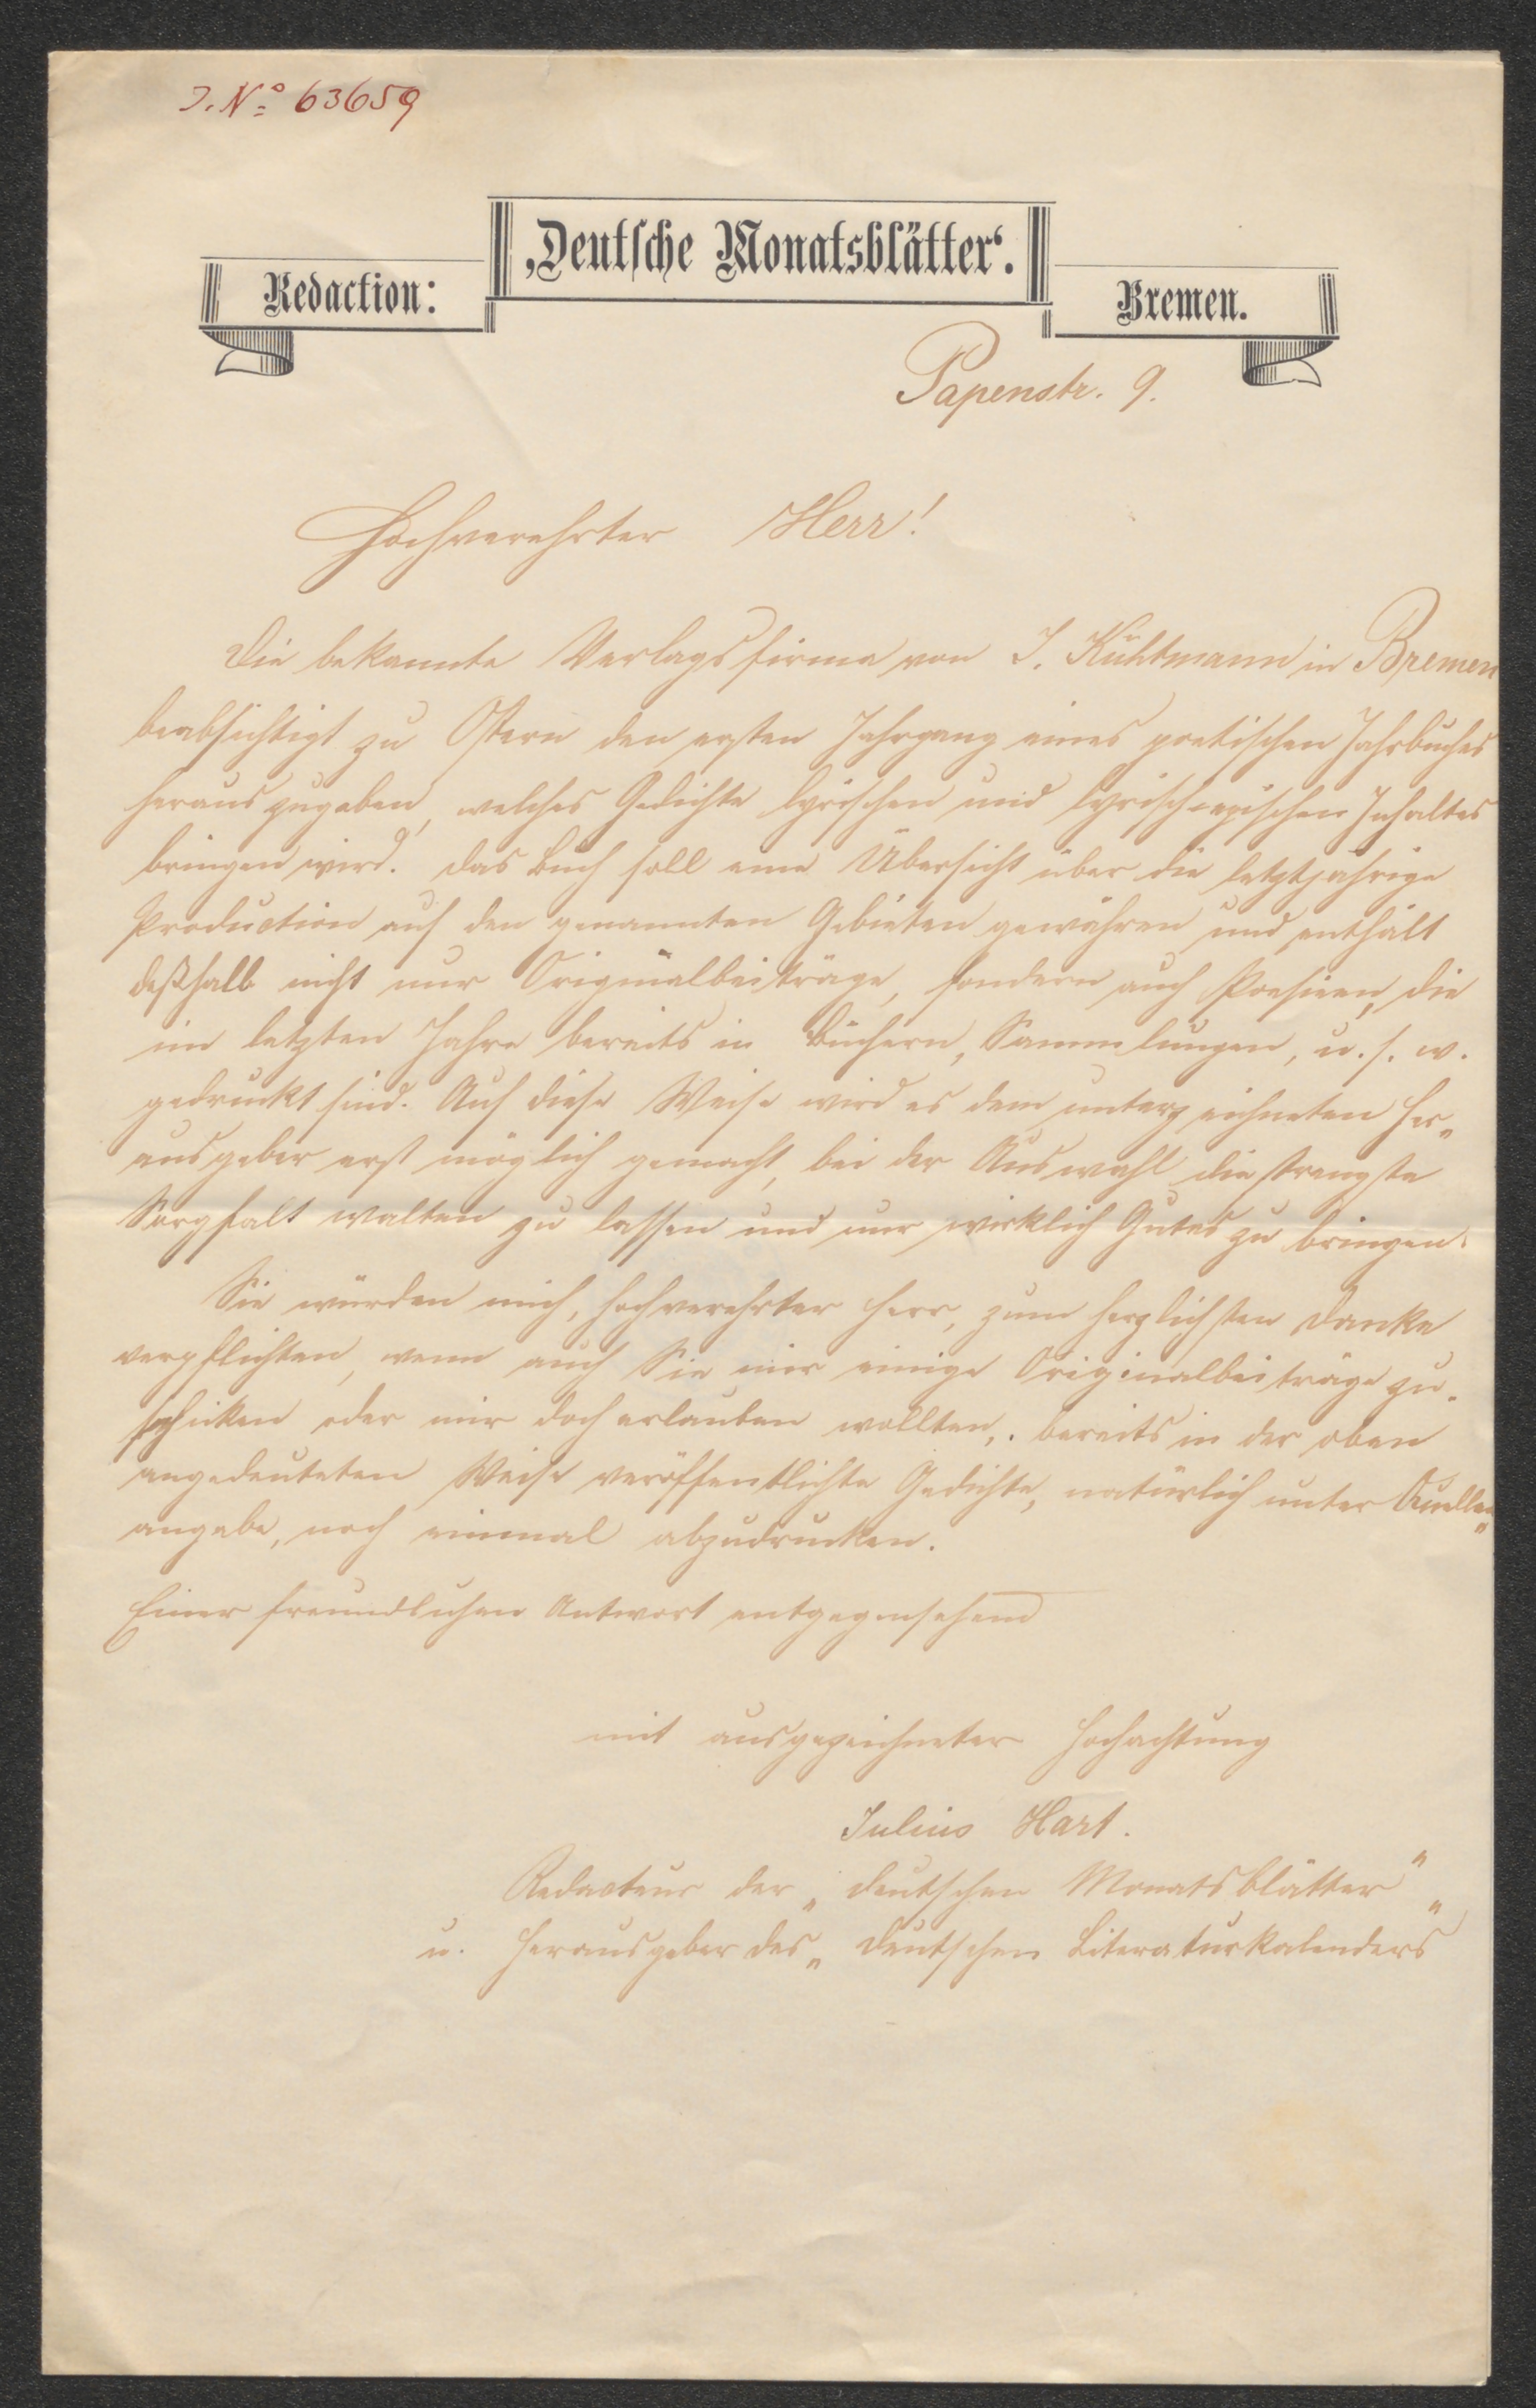 J. No 63659
„Deutsche Monatsblätter“.
Redaction:
Bremen.
Papenstr. 9.
Hochverehrter Herr!
Die bekannte Verlagsfirma von J. Kühtmann in Bremen
beabsichtigt zu Ostern den ersten Jahrgang eines poetischen Jahrbuches
herauszugeben, welches Gedichte lyrischen und lyrisch-epischen Inhaltes
bringen wird. Das Buch soll eine Übersicht über die letztjährige
Production auf den genannten Gebieten gewähren und enthält
deßhalb nicht nur Originalbeiträge, sondern auch Poesieen, die
im letzten Jahre bereits in Büchern, Sammlungen, u. s. w.
gedruckt sind. Auf diese Weise wird es dem unterzeichneten Her„
ausgeber erst möglich gemacht, bei der Auswahl die strengste
Sorgfalt walten zu lassen und nur wirklich Gutes zu bringen.
Sie würden mich, hochverehrter Herr, zum herzlichsten Danke
verpflichten, wenn auch Sie mir einige Originalbeiträge zu„
schicken oder mir doch erlauben wollten, bereits in der oben
angedeuteten Weise veröffentlichte Gedichte, natürlich unter Quellen„
angabe, noch einmal abzudrucken.
Einer freundlichen Antwort entgegensehend
mit ausgezeichneter Hochachtung
Julius Hart.
Redacteur der „Deutschen Monatsblätter“
u. Herausgeber des „Deutschen Literaturkalenders“